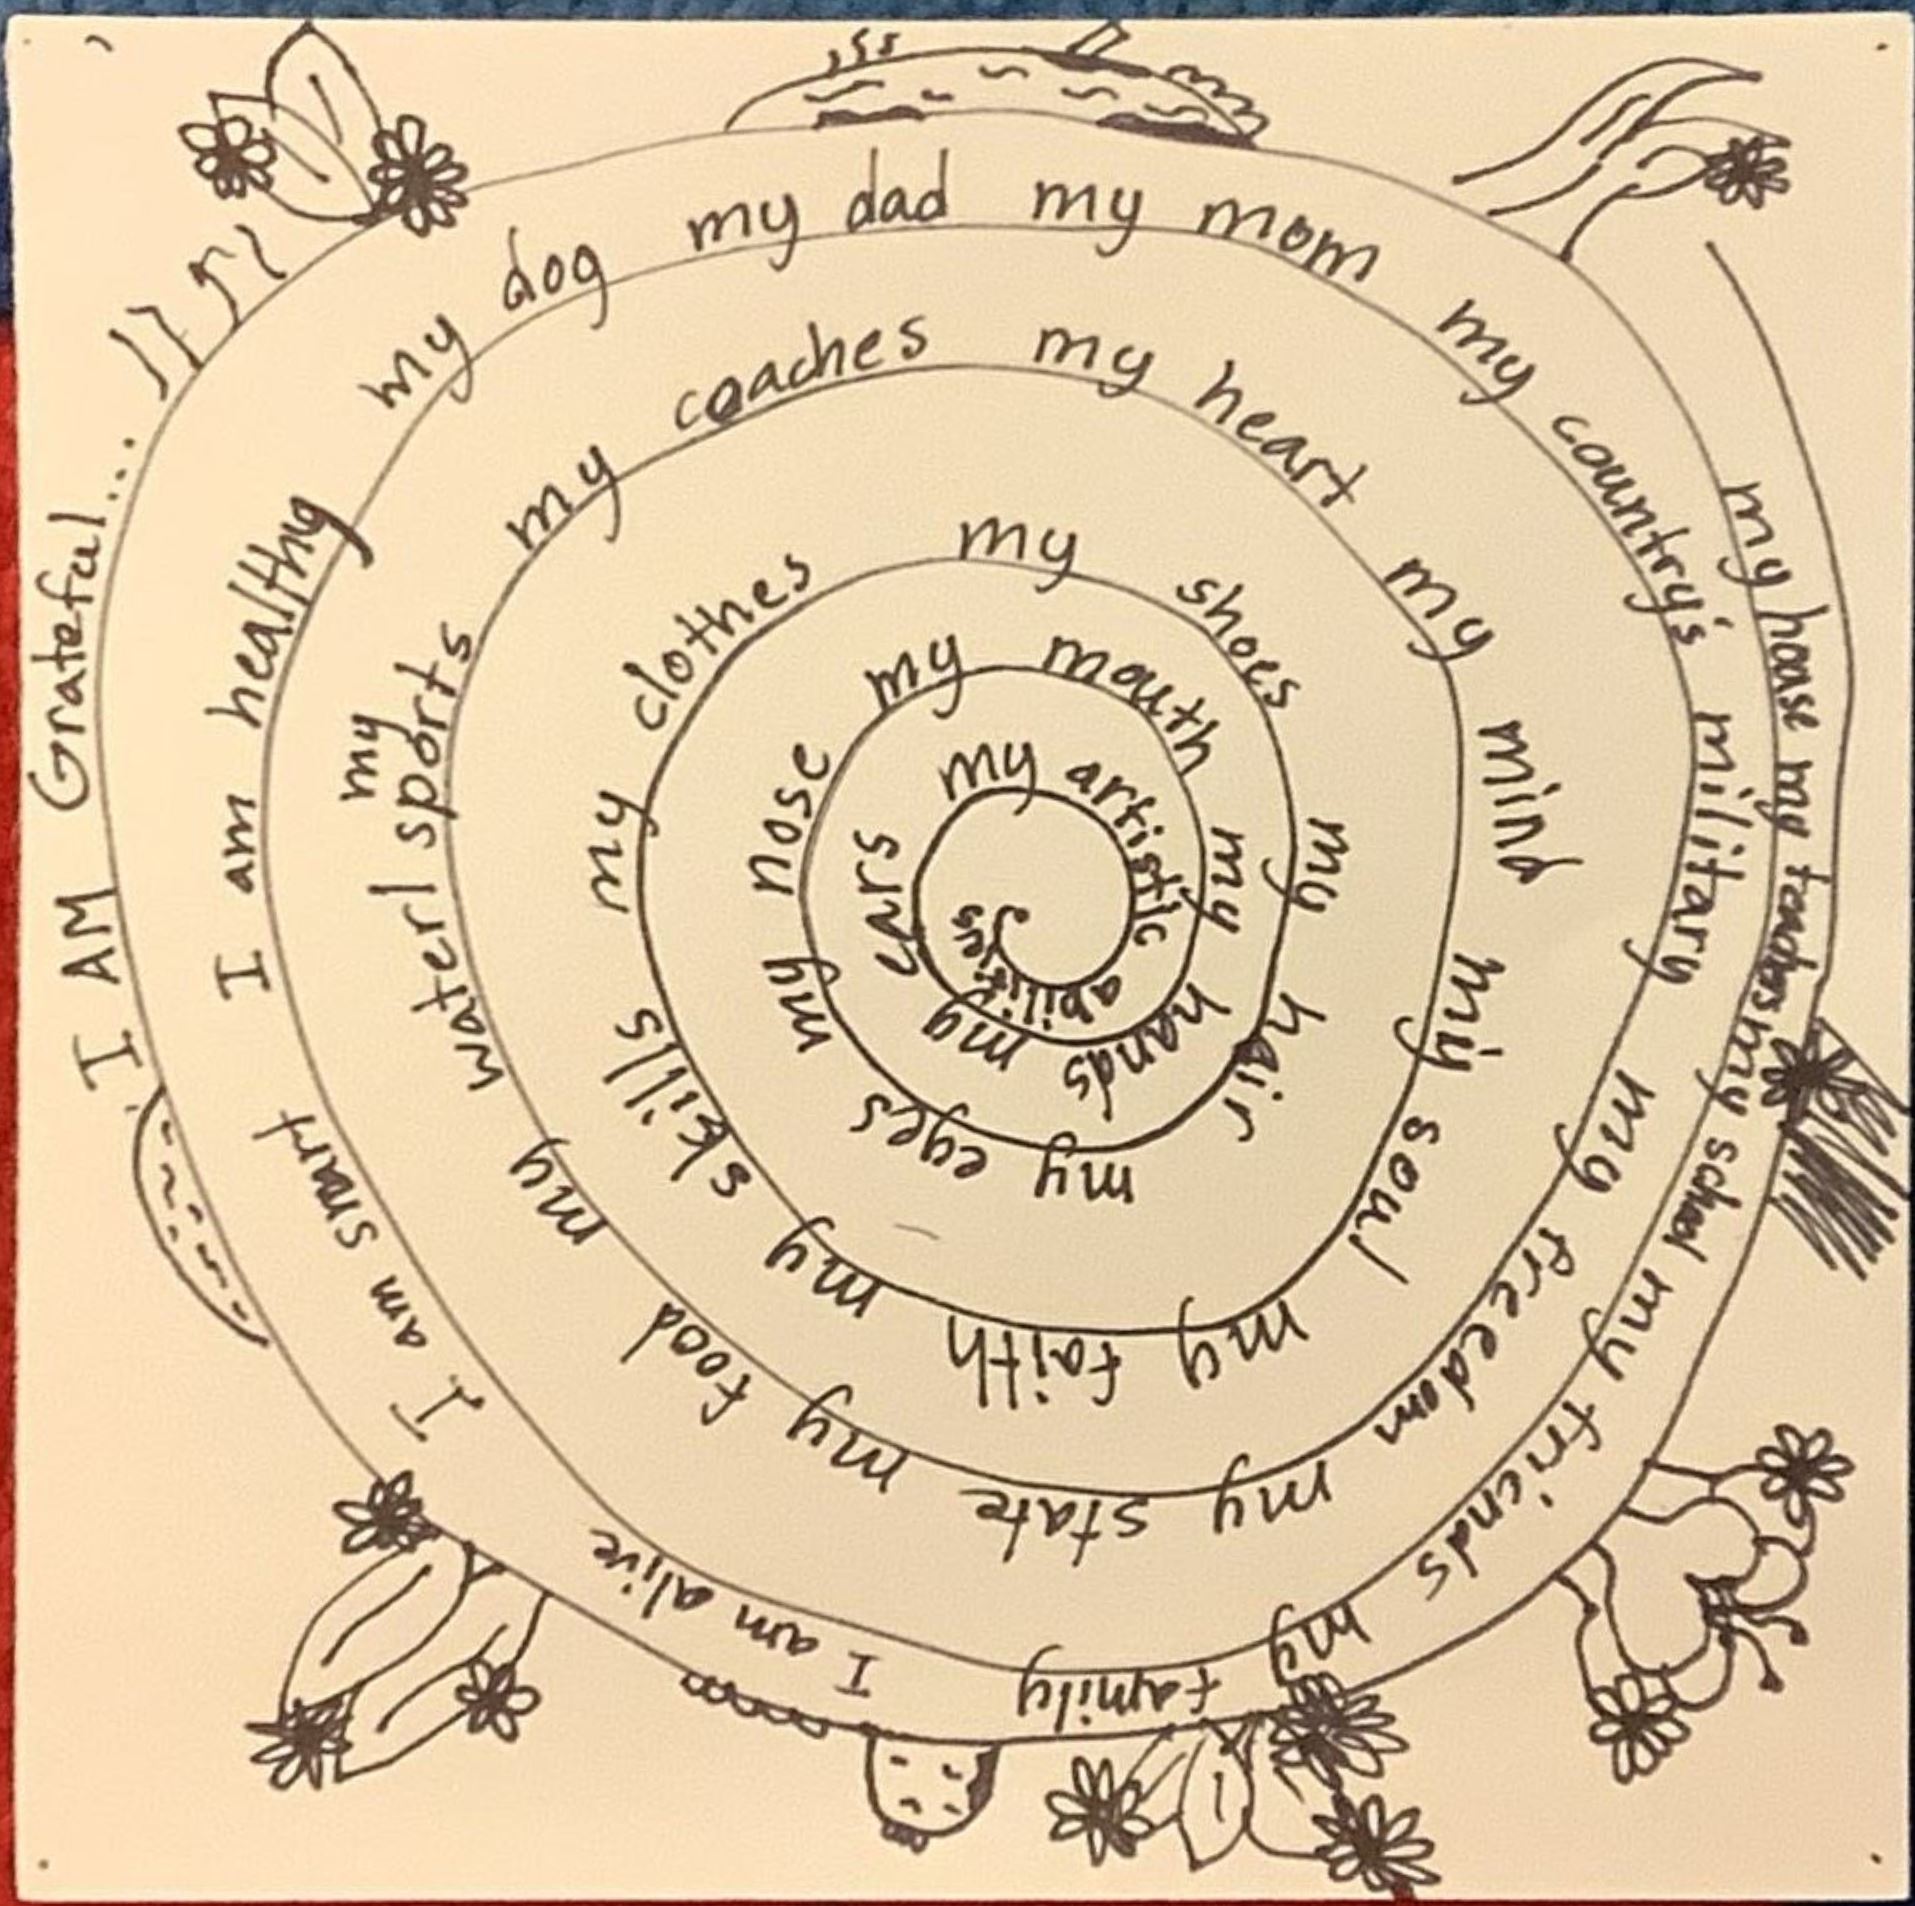 I AM Grateful...
my house my teachers my school my friends my family I am alive I am smart I am healthy
my dog my dad my mom my country's military my freedom my state my food my water| my sports
my coaches my heart my mind my soul my faith my skills my clothes
my shoes my hair my eyes my nose
my mouth my hands my ears
my artistic abilities